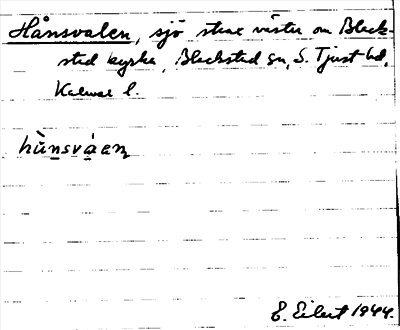 Hånsvalen, sjö strax väster om Black-
sted kyrka, Blacksted sn, S. Tjust hd,
Kalmar l.
hùnsvàen
E. Eilert 1944.